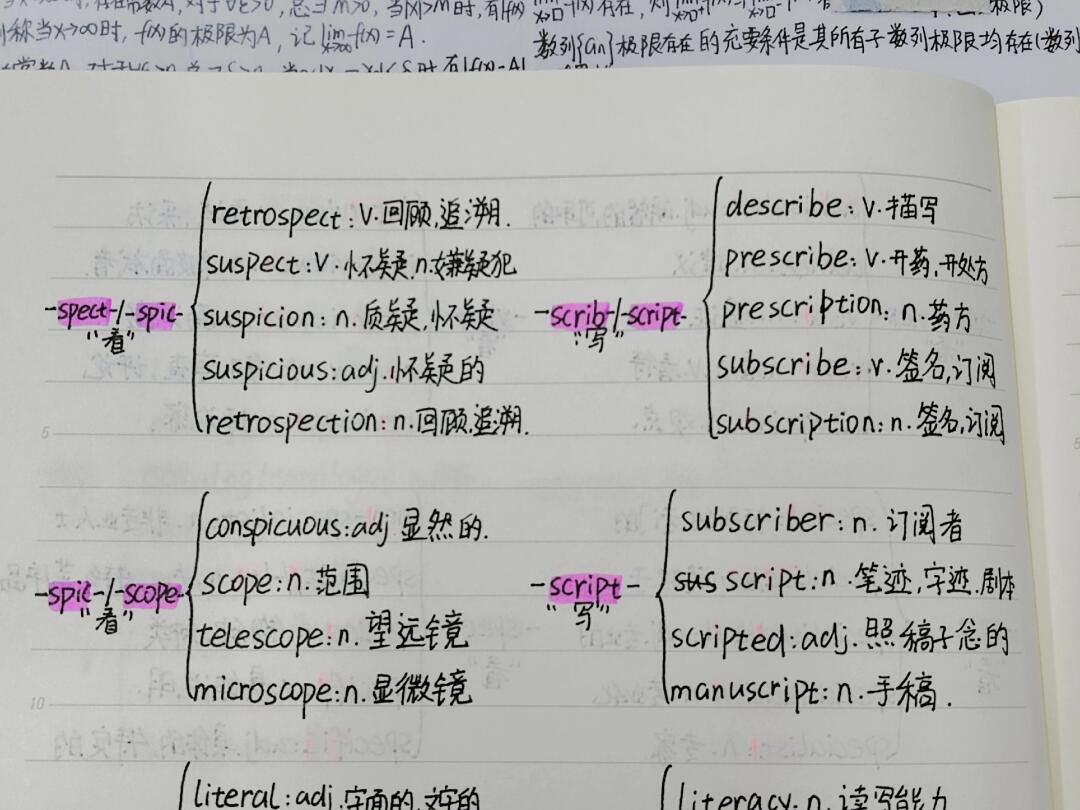 称当x→∞时, f(x)的极限为A, 记lim f(x)=A.
x→∞
数列{an}极限存在的充要条件是其所有子数列极限均存在(数列
retrospect: v. 回顾,追溯.
suspect: v. 怀疑, n.嫌疑犯
-spect-/-spic-
suspicion: n. 质疑,怀疑
"看"
suspicious: adj. 怀疑的
retrospection: n. 回顾,追溯.
describe: v. 描写
prescribe: v. 开药,开处方
-scrib-/-script-
prescription: n. 药方
"写"
subscribe: v. 签名,订阅
subscription: n. 签名,订阅
5
conspicuous: adj 显然的.
-spic-/-scope-
scope: n. 范围
"看"
telescope: n. 望远镜
microscope: n. 显微镜
10
subscriber: n. 订阅者
-script-
script: n. 笔迹,字迹.剧本
"写"
scripted: adj. 照稿子念的
manuscript: n. 手稿.
literal: adj. 字面的,文字的
literacy: n. 读写能力